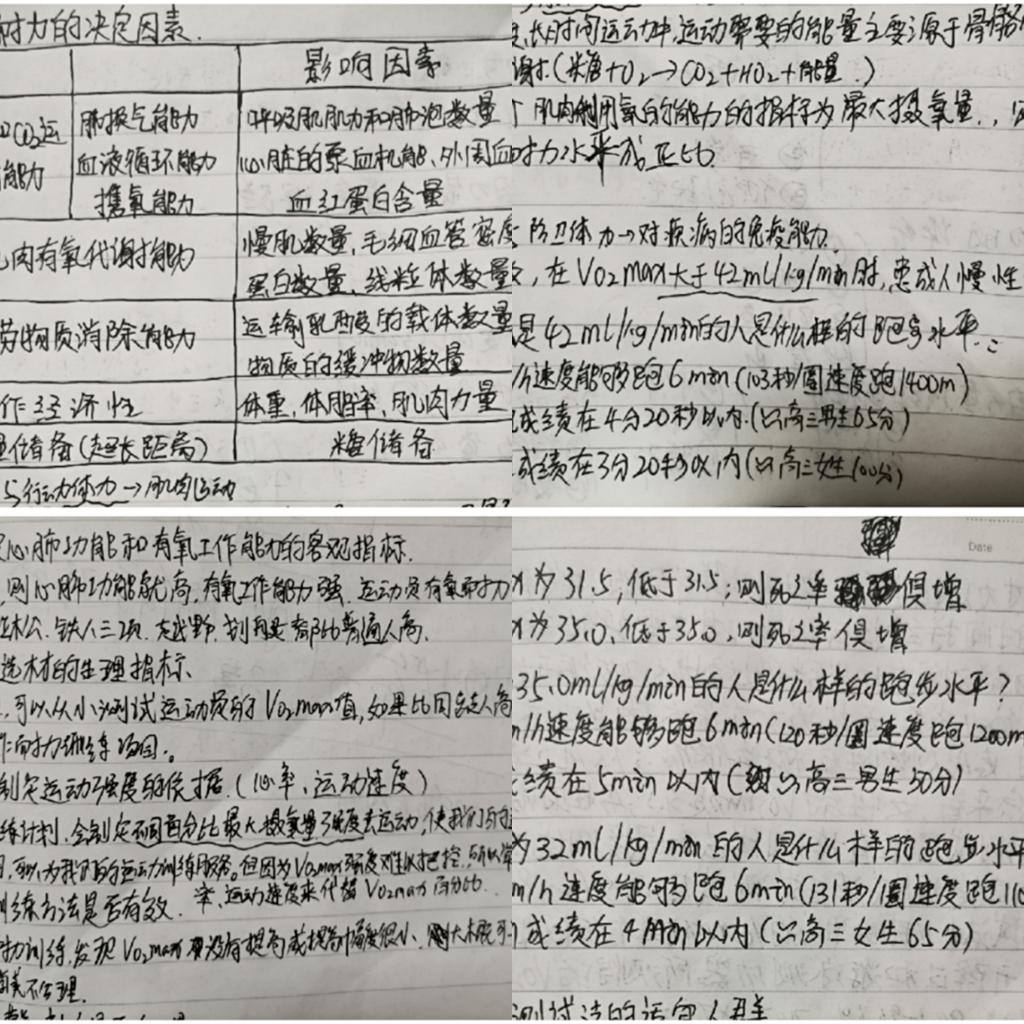 耐力的决定因素.
影响因素
CO2运
能力
肺换气能力
呼吸肌肌力和肺泡数量
血液循环能力
心脏的泵血机能、外周血
携氧能力
血红蛋白含量
肉有氧代谢能力
慢肌数量、毛细血管密度
蛋白数量、线粒体数量
劳物质消除能力
运输乳酸的载体数量
物质的缓冲物数量
作经济性
体重、体脂率、肌肉力量
储备(超长距离)
糖储备
与行动体力→肌肉运动
长时间运动中,运动需要的能量主要源于骨骼
谢.(糖+O2→CO2+HO2+能量.)
肌肉利用氧的能力的指标为最大摄氧量.,
耐力水平成正比
防卫体力→对疾病的免疫能力.
,在VO2max大于42mL/kg/min时,患成人慢性
是42mL/kg/min的人是什么样的跑步水平.
/h速度能够跑6min(103秒/圈速度跑1400m)
成绩在4分20秒以内.(以高三男生65分)
成绩在3分20秒以内(以高三女生100分)
心肺功能和有氧工作能力的客观指标.
,则心肺功能就高,有氧工作能力强.运动员有氧耐力
铁人三项.越野.划船
都比普通人高.
选材的生理指标.
,可以从小测试运动员的VO2max值,如果比同龄人高
耐力训练项目。
制定运动强度的依据.(心率、运动速度)
练计划.会制定不同百分比最大摄氧量强度去运动,使我们的
,可以为我们的运动训练服务。但因为VO2max强度难以把控,所以
率、运动速度来代替VO2max百分比.
训练方法是否有效.
训练,发现VO2max没有提高或提高幅度很小、则大概
不合理.
Date
为31.5,低于31.5;则死亡率俱增
为35.0,低于35.0,则死亡率俱增
35.0mL/kg/min的人是什么样的跑步水平?
/h速度能够跑6min(120秒/圈速度跑1200m
绩在5min以内(以高三男生50分)
为32mL/kg/min的人是什么样的跑步水平
m/h速度能够跑6min(131秒/圈速度跑110
成绩在4min以内(以高三女生65分)
测试法的适宜人群